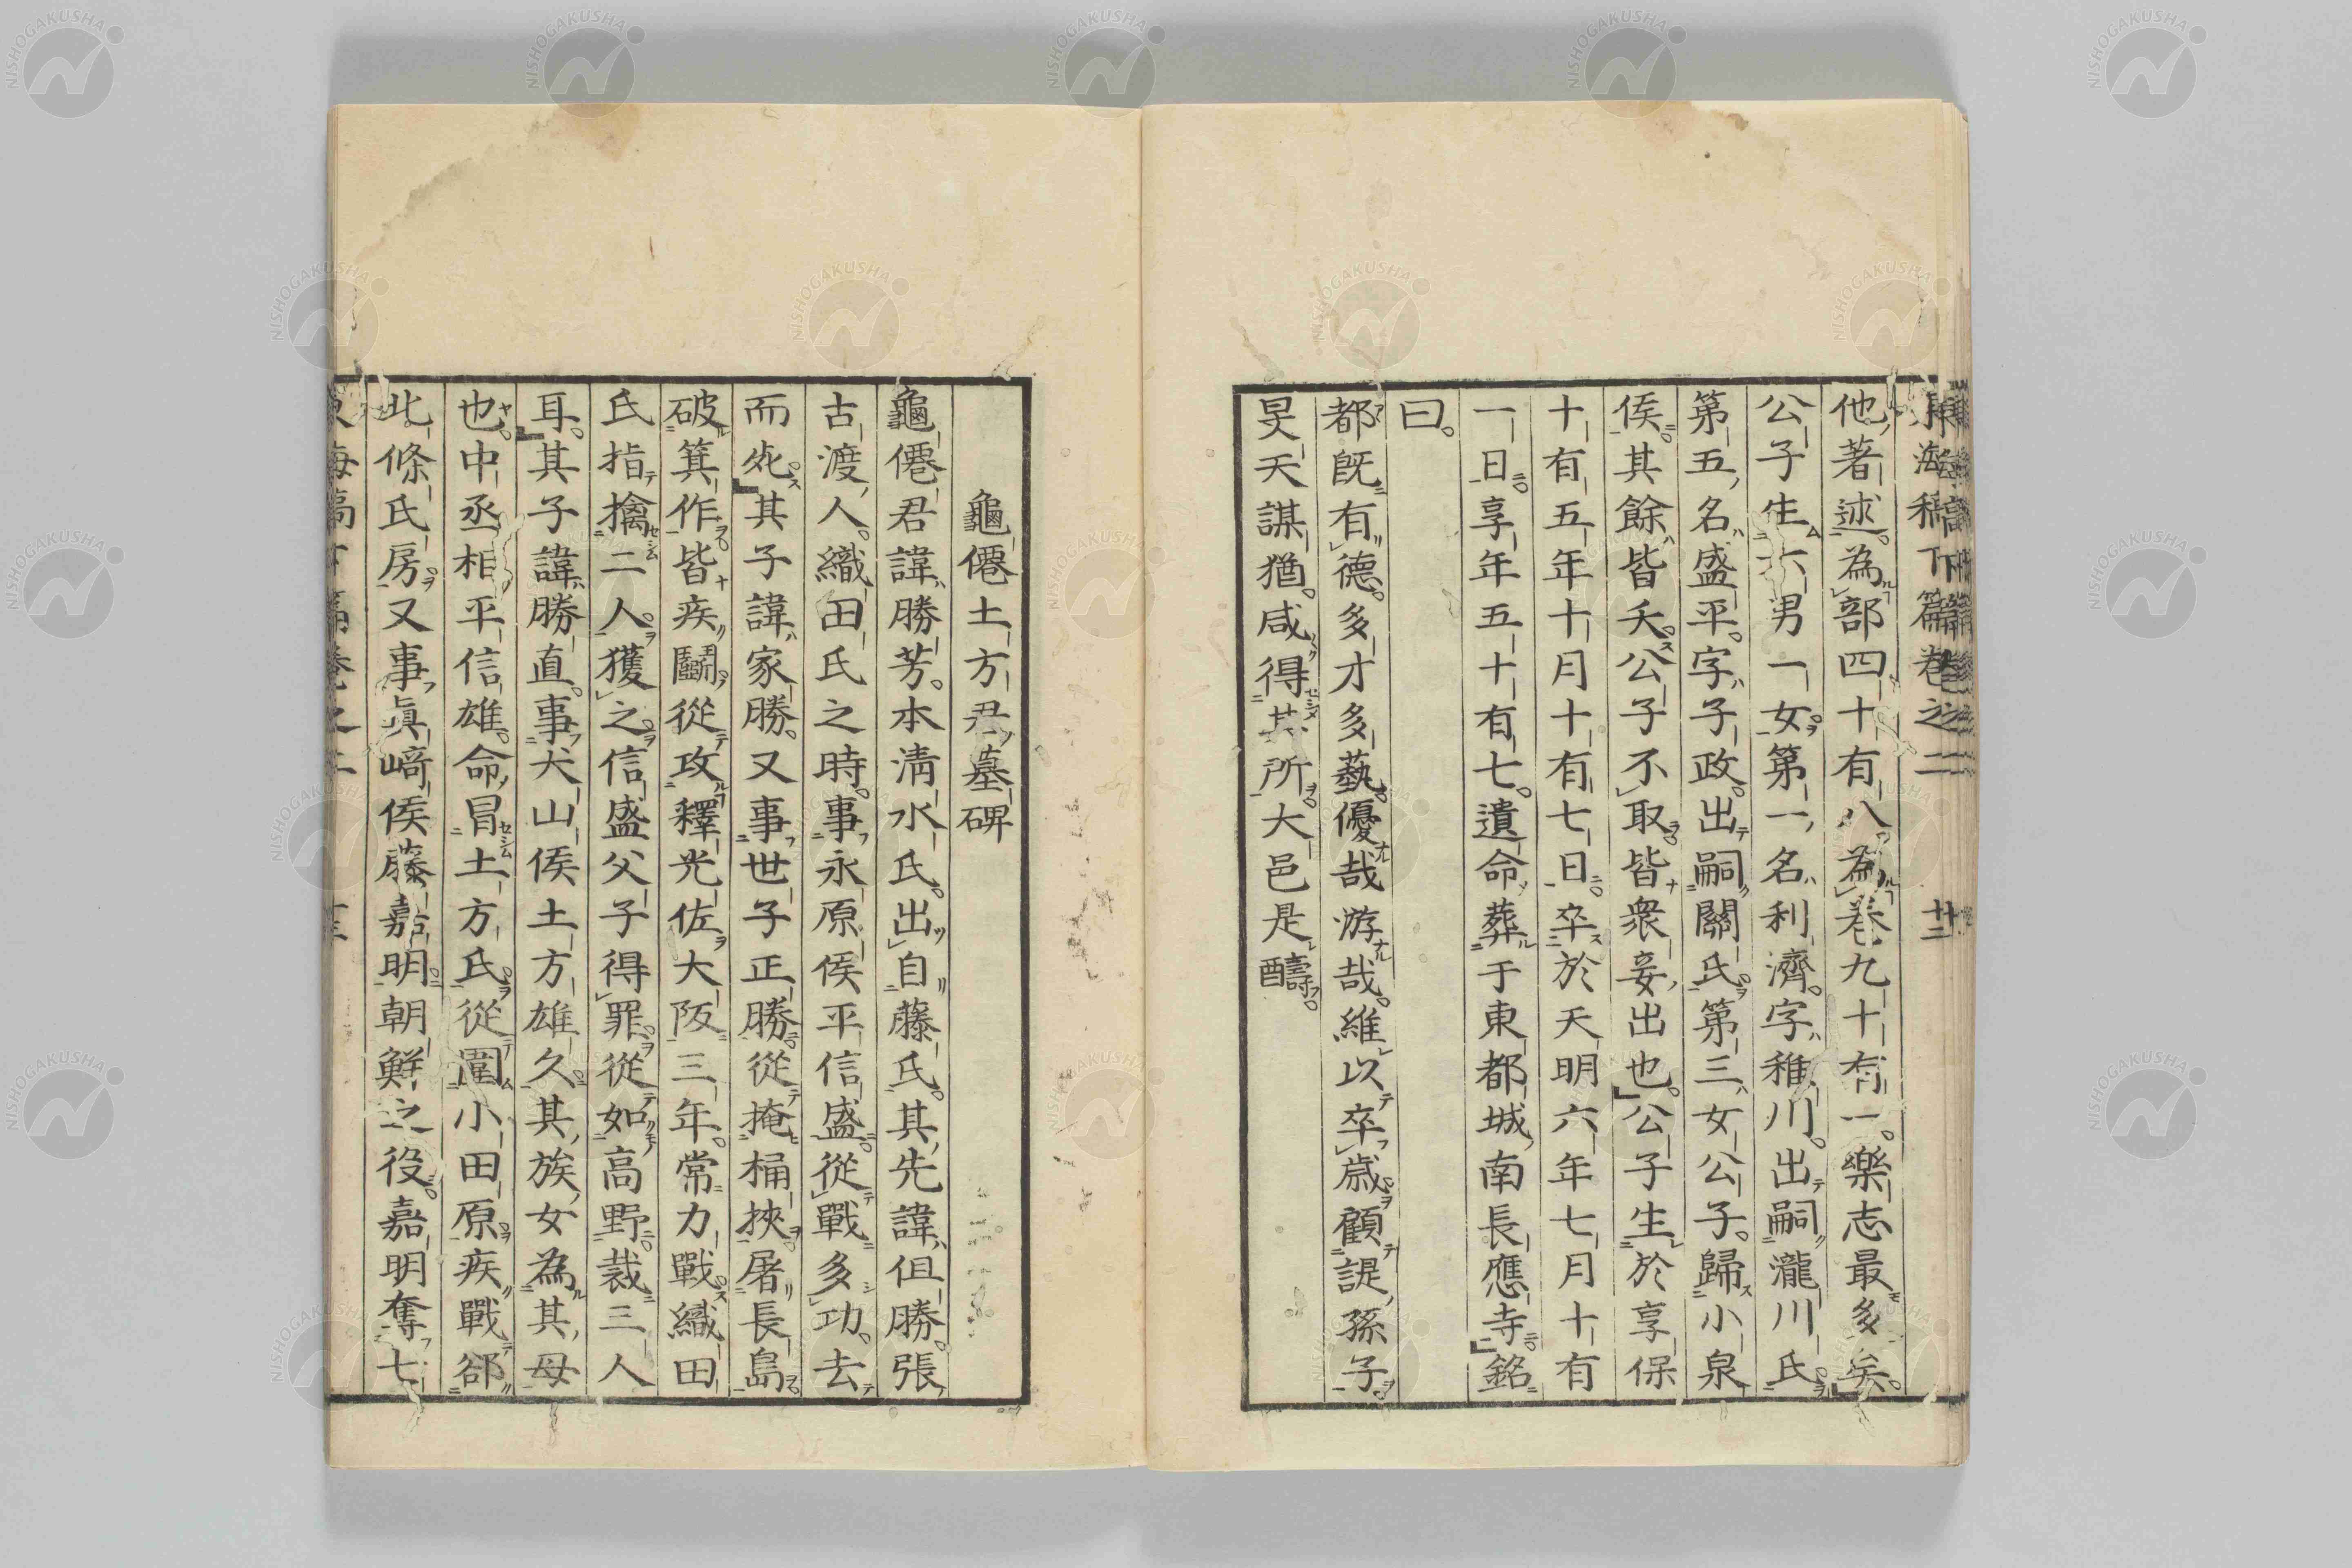 東海稿下篇卷之二 廿二
他著述為部四十有八為卷九十有一樂志最多矣
公子生六男一女第一名利濟字稚川出嗣瀧川氏
第五名盛平字子政出嗣關氏第三女公子歸小泉
侯其餘皆夭公子不取皆衆妾出也公子生於享保
十有五年十月十有七日卒於天明六年七月十有
一日享年五十有七遺命葬于東都城南長應寺銘
曰
都旣有德多才多藝優哉游哉維以卒歲顧諟孫子
旻天謀猶咸得其所大邑是醻
龜僊土方君墓碑
龜僊君諱勝芳本淸水氏出自藤氏其先諱但勝張
古渡人織田氏之時事永原侯平信盛從戰多功去
而死其子諱家勝又事世子正勝從掩桶挾屠長島
破箕作皆疾鬭從攻釋光佐大阪三年常力戰織田
氏指擒二人獲之信盛父子得罪從如高野裁三人
耳其子諱勝直事犬山侯土方雄久其族女為其母
也中丞相平信雄命冒土方氏從圍小田原疾戰郤
北條氏房又事眞﨑侯藤嘉明朝鮮之役嘉明奪七
NISHOGAKUSHA